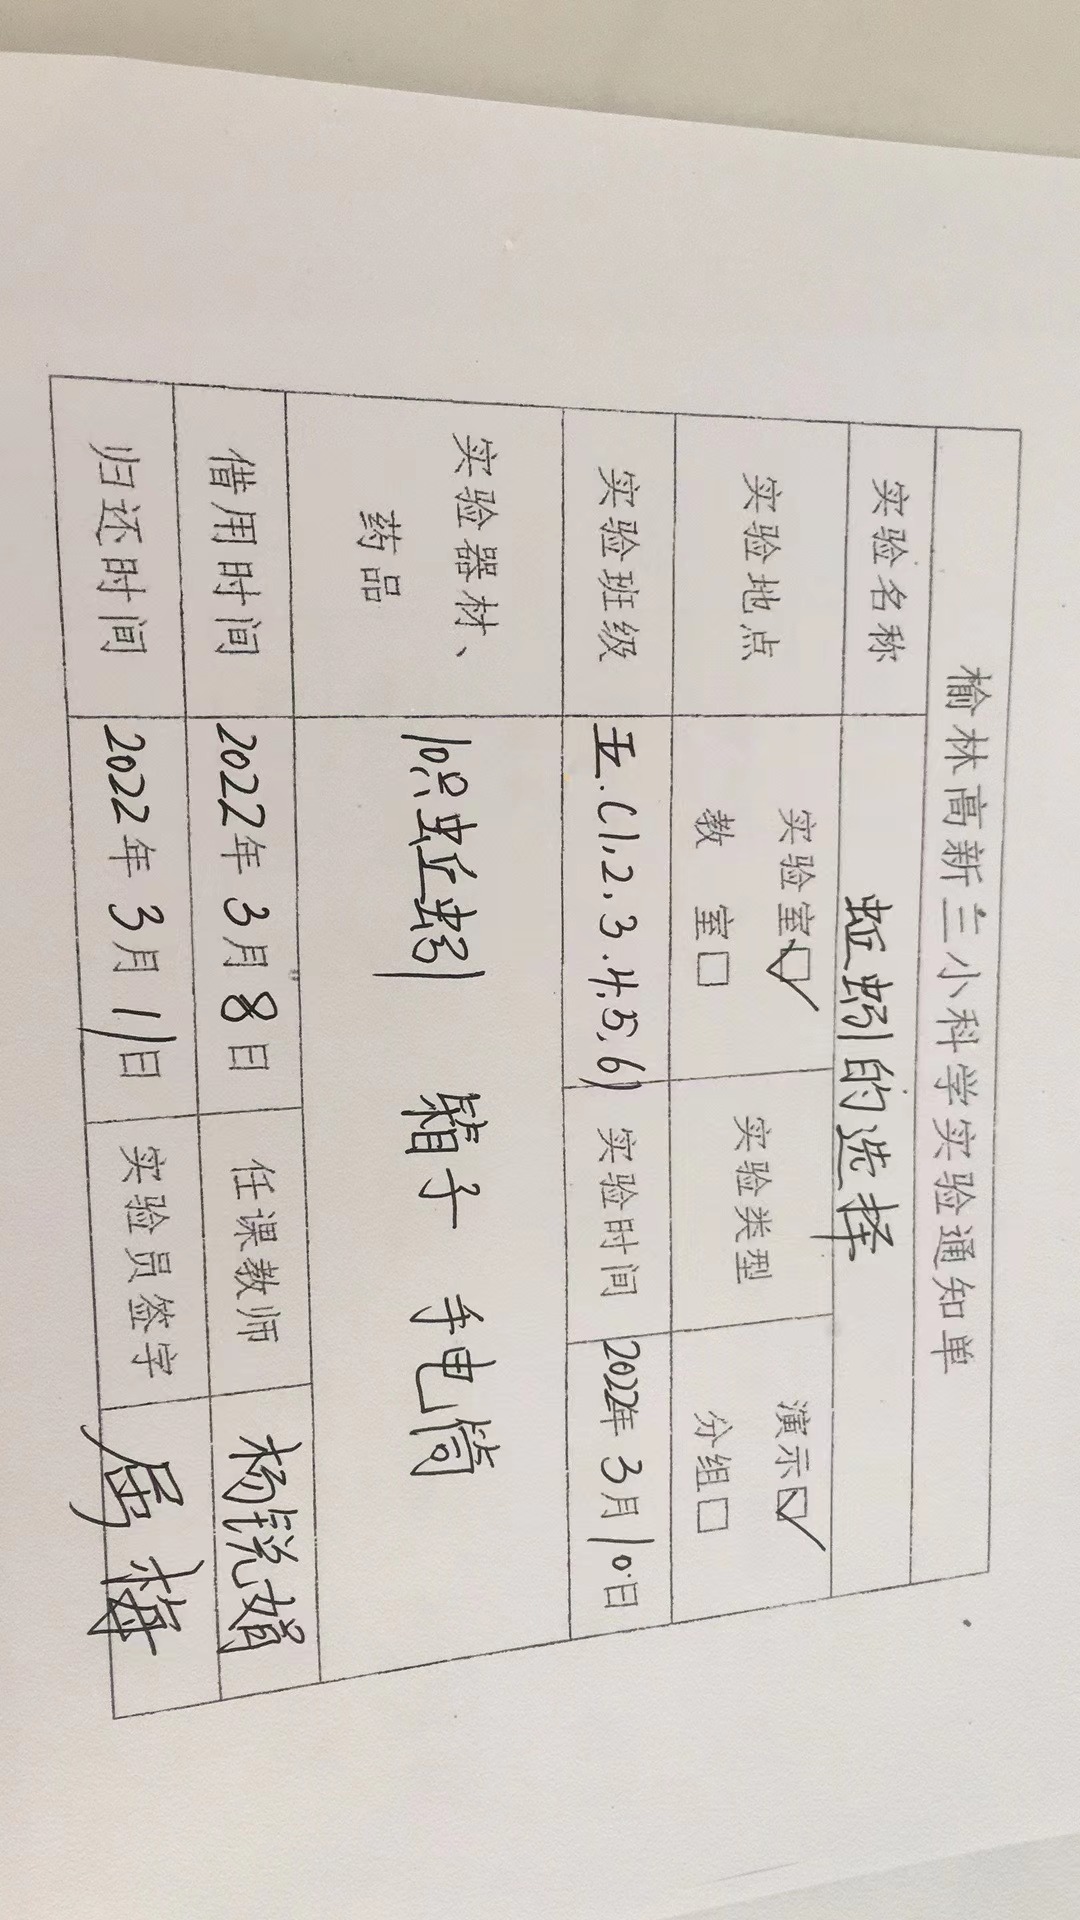 榆林高新三小科学实验通知单
实验名称 蚯蚓的选择
实验地点 实验室☑ 教 室□ 实验类型 演示☑ 分组□
实验班级 五.(1,2,3.4,5,6) 实验时间 2022年3月10日
实验器材、药品 10只蚯蚓 箱子 手电筒
借用时间 2022年3月8日 任课教师 杨锐娟
归还时间 2022年3月11日 实验员签字 屈梅